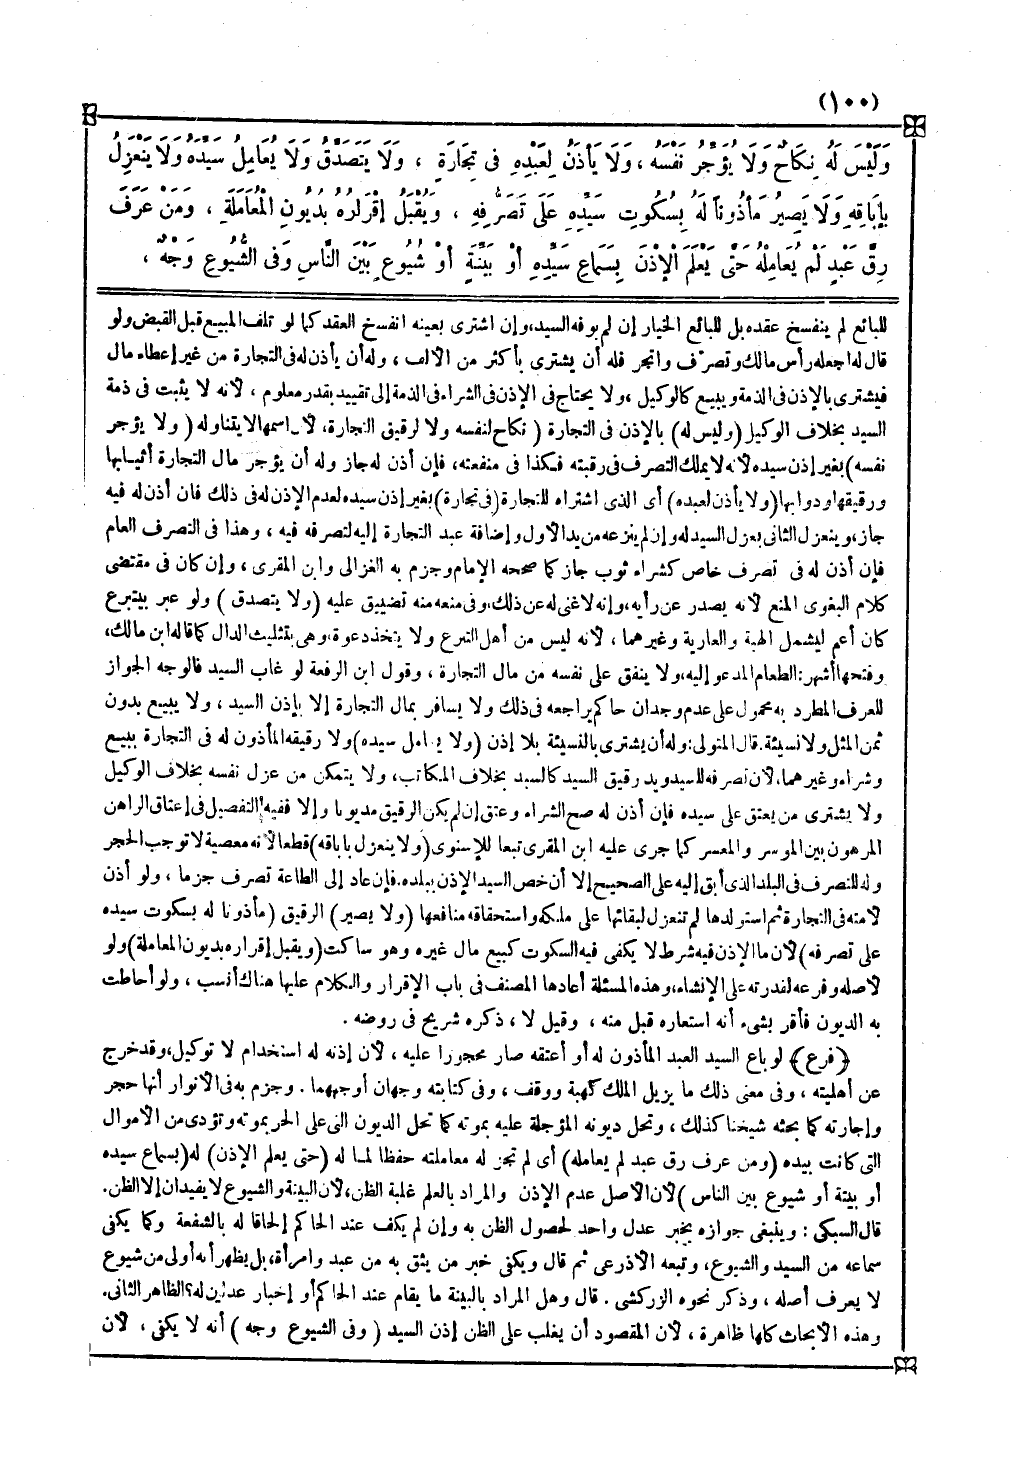 (١٠٠)
وَلَيْسَ لَهُ نِكَاحٌ وَلَا يُؤَجِّرُ نَفْسَهُ ، وَلَا يَأْذَنُ لِعَبْدِهِ فِى تِجَارَةٍ ، وَلَا يَتَصَدَّقُ وَلَا يُعَامِلُ سَيِّدَهُ وَلَا يَنْعَزِلُ
بِإِبَاقِهِ وَلَا يَصِيرُ مَأْذُوناً لَهُ بِسُكُوتِ سَيِّدِهِ عَلَى تَصَرُّفِهِ ، وَيُقْبَلُ إِقْرَارُهُ بِدُيُونِ الْمُعَامَلَةِ ، وَمَنْ عَرَفَ
رِقَّ عَبْدٍ لَمْ يُعَامِلْهُ حَتَّى يَعْلَمَ الْإِذْنَ بِسَمَاعِ سَيِّدِهِ أَوْ بَيِّنَةٍ أَوْ شُيُوعٍ بَيْنَ النَّاسِ وَفِى الشُّيُوعِ وَجْهٌ ،
للبائع لم ينفسخ عقده بل للبائع الخيار إن لم يوفه السيد، وإن اشترى بعينه انفسخ العقد كما لو تلف المبيع قبل القبض ولو
قال له اجعله رأس مالك وتصرّف واتجر فله أن يشترى بأكثر من الألف ، وله أن يأذن له فى التجارة من غير إعطاء مال
فيشترى بالإذن فى الذمة ويبيع كالوكيل ، ولا يحتاج فى الإذن فى الشراء فى الذمة إلى تقييد بقدر معلوم ، لأنه لا يثبت فى ذمة
السيد بخلاف الوكيل (وليس له) بالإذن فى التجارة ( نكاح لنفسه ولا لرقيق التجارة، لأن اسمها لا يتناوله ( ولا يؤجر
نفسه) بغير إذن سيده لأنه لا يملك التصرف فى رقبته فكذا فى منفعته، فإن أذن له جاز وله أن يؤجر مال التجارة أثيابها
ورقيقها ودوابها (ولا يأذن لعبده) أى الذى اشتراه للتجارة (فى تجارة) بغير إذن سيده لعدم الإذن له فى ذلك فان أذن له فيه
جاز، وينعزل الثانى بعزل السيد له وإن لم ينزعه من يد الأول وإضافة عبد التجارة إليه لتصرفه فيه ، وهذا فى التصرف العام
فإن أذن له فى تصرف خاص كشراء ثوب جاز كما صححه الإمام وجزم به الغزالى وابن المقرى ، وإن كان فى مقتضى
كلام البغوى المنع لأنه يصدر عن رأيه، وإنه لا غنى له عن ذلك، وفى منعه منه تضييق عليه (ولا يتصدق ) ولو عبر بيتبرع
كان أعم ليشمل الهبة والعارية وغيرهما ، لأنه ليس من أهل التبرع ولا يتخذ دعوة، وهى بتثليث الدال كما قاله ابن مالك،
وفتحها أشهر: الطعام المدعو إليه، ولا ينفق على نفسه من مال التجارة ، وقول ابن الرفعة لو غاب السيد فالوجه الجواز
للعرف المطرد به محمول على عدم وجدان حاكم يراجعه فى ذلك ولا يسافر بمال التجارة إلا بإذن السيد ، ولا يبيع بدون
ثمن المثل ولا نسيئة. قال المتولى: وله أن يشترى بالنسيئة بلا إذن (ولا يعامل سيده) ولا رقيقه المأذون له فى التجارة ببيع
وشراء وغيرهما، لأن تصرفه للسيد ويد رقيق السيد كالسيد بخلاف المكاتب، ولا يتمكن من عزل نفسه بخلاف الوكيل
ولا يشترى من يعتق على سيده فإن أذن له صح الشراء وعتق إن لم يكن الرقيق مديونا وإلا ففيه التفصيل فى إعتاق الراهن
المرهون بين الموسر والمعسر كما جرى عليه ابن المقرى تبعا للإسنوى (ولا ينعزل بإباقه) قطعا لأنه معصية لا توجب الحجر
وله التصرف فى البلد الذى أبق إليه على الصحيح إلا أن خص السيد الإذن ببلده. فإن عاد إلى الطاعة تصرف جزما ، ولو أذن
لأمته فى التجارة ثم استولدها لم تنعزل لبقائها على ملكه واستحقاقه منافعها (ولا يصير) الرقيق (مأذونا له بسكوت سيده
على تصرفه) لأن ما الإذن فيه شرط لا يكفى فيه السكوت كبيع مال غيره وهو ساكت (ويقبل إقراره بديون المعاملة) ولو
لأصله وفرعه لقدرته على الإنشاء، وهذه المسئلة أعادها المصنف فى باب الإقرار والكلام عليها هناك أنسب ، ولو أحاطت
به الديون فأقر بشىء أنه استعاره قبل منه ، وقيل لا ، ذكره شريح فى روضه .
﴿فرع﴾ لو باع السيد العبد المأذون له أو أعتقه صار محجورا عليه ، لأن إذنه له استخدام لا توكيل، وقد خرج
عن أهليته ، وفى معنى ذلك ما يزيل الملك كهبة ووقف ، وفى كتابته وجهان أوجههما . وجزم به فى الأنوار أنها حجر
وإجارته كما بحثه شيخنا كذلك ، وتحل ديونه المؤجلة عليه بموته كما تحل الديون التى على الحر بموته وتؤدى من الأموال
التى كانت بيده (ومن عرف رق عبد لم يعامله) أى لم تجز له معاملته حفظا لماله (حتى يعلم الإذن) له (بسماع سيده
أو بينة أو شيوع بين الناس ) لأن الأصل عدم الإذن والمراد بالعلم غلبة الظن، لأن البينة والشيوع لا يفيدان إلا الظن.
قال السبكى : وينبغى جوازه بخبر عدل واحد لحصول الظن به وإن لم يكف عند الحاكم إلحاقا له بالشفعة وكما يكفى
سماعه من السيد والشيوع، وتبعه الأذرعى ثم قال ويكفى خبر من يثق به من عبد وامرأة، بل يظهر أنه أولى من شيوع
لا يعرف أصله ، وذكر نحوه الزركشى . قال وهل المراد بالبينة ما يقام عند الحاكم أو إخبار عدلين له؟ الظاهر الثانى.
وهذه الأبحاث كلها ظاهرة ، لأن المقصود أن يغلب على الظن إذن السيد ( وفى الشيوع وجه ) أنه لا يكفى ، لأن